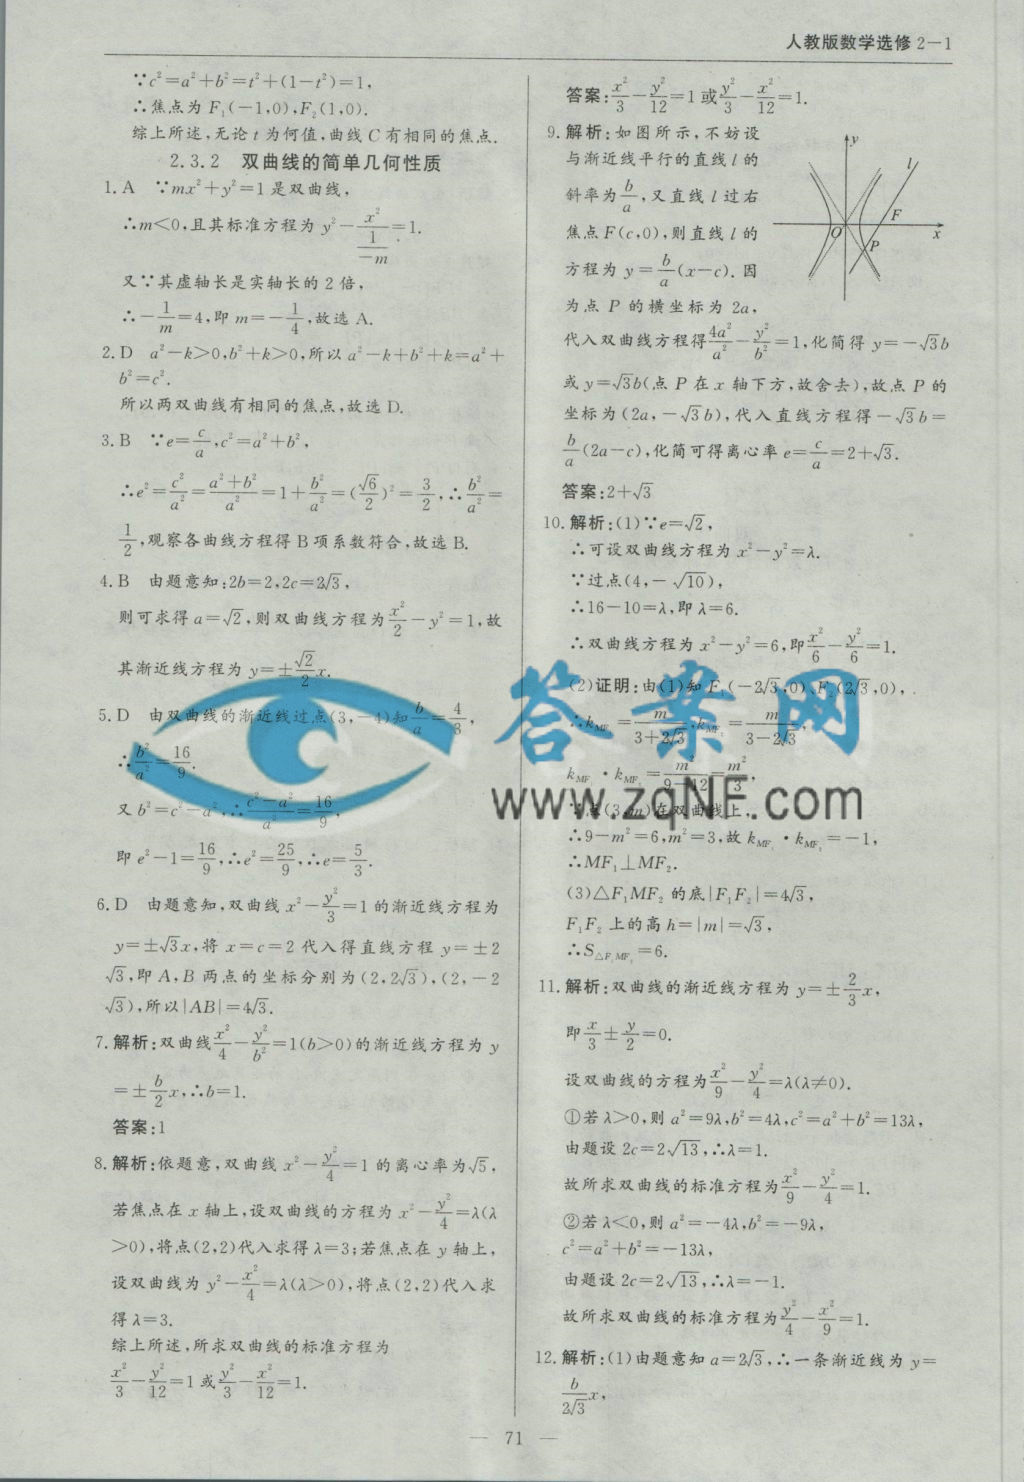 人教版数学选修 2-1
∵c²=a²+b²=t²+(1-t²)=1,
∴焦点为 F₁(-1,0),F₂(1,0).
综上所述,无论 t 为何值,曲线 C 有相同的焦点.
2.3.2 双曲线的简单几何性质
1.A ∵mx²+y²=1 是双曲线,
∴m<0,且其标准方程为 y²-x²/(1/-m)=1.
又∵其虚轴长是实轴长的 2 倍,
∴-1/m=4,即 m=-1/4,故选 A.
2.D a²-k>0,b²+k>0,所以 a²-k+b²+k=a²+
b²=c².
所以两双曲线有相同的焦点,故选 D.
3.B ∵e=c/a,c²=a²+b²,
∴e²=c²/a²=(a²+b²)/a²=1+b²/a²=(√6/2)²=3/2,∴b²/a²=
1/2,观察各曲线方程得 B 项系数符合,故选 B.
4.B 由题意知:2b=2,2c=2√3,
则可求得 a=√2,则双曲线方程为x²/2-y²=1,故
其渐近线方程为 y=±√2/2x.
5.D 由双曲线的渐近线过点(3,-4)知b/a=4/3,
∴b²/a²=16/9.
又 b²=c²-a²,∴(c²-a²)/a²=16/9,
即 e²-1=16/9,∴e²=25/9,∴e=5/3.
6.D 由题意知,双曲线 x²-y²/3=1 的渐近线方程为
y=±√3x,将 x=c=2 代入得直线方程 y=±2
√3,即 A,B 两点的坐标分别为(2,2√3),(2,-2
√3),所以|AB|=4√3.
7.解析:双曲线x²/4-y²/b²=1(b>0)的渐近线方程为 y
=±b/2x,∴b=1.
答案:1
8.解析:依题意,双曲线 x²-y²/4=1 的离心率为√5,
若焦点在 x 轴上,设双曲线的方程为 x²-y²/4=λ(λ
>0),将点(2,2)代入求得 λ=3;若焦点在 y 轴上,
设双曲线为 y²-x²/4=λ(λ>0),将点(2,2)代入求
得 λ=3.
综上所述,所求双曲线的标准方程为
x²/3-y²/12=1 或y²/3-x²/12=1.
答案:x²/3-y²/12=1 或y²/3-x²/12=1.
9.解析:如图所示,不妨设
与渐近线平行的直线 l 的
斜率为b/a,又直线 l 过右
焦点 F(c,0),则直线 l 的
方程为 y=b/a(x-c).因
为点 P 的横坐标为 2a,
y
l
F
O
P
x
代入双曲线方程得4a²/a²-y²/b²=1,化简得 y=-√3b
或 y=√3b(点 P 在 x 轴下方,故舍去),故点 P 的
坐标为(2a,-√3b),代入直线方程得-√3b=
b/a(2a-c),化简可得离心率 e=c/a=2+√3.
答案:2+√3
10.解析:(1)∵e=√2,
∴可设双曲线方程为 x²-y²=λ.
∵过点(4,-√10),
∴16-10=λ,即 λ=6.
∴双曲线方程为 x²-y²=6,即x²/6-y²/6=1.
(2)证明:由(1)知 F₁(-2√3,0),F₂(2√3,0),
∴k_MF₁=m/(3+2√3),k_MF₂=m/(3-2√3),
k_MF₁·k_MF₂=m²/(9-12)=-m²/3,
∵点(3,m)在双曲线上,
∴9-m²=6,m²=3,故 k_MF₁·k_MF₂=-1,
∴MF₁⊥MF₂.
(3)△F₁MF₂ 的底|F₁F₂|=4√3,
F₁F₂ 上的高 h=|m|=√3,
∴S△F₁MF₂=6.
11.解析:双曲线的渐近线方程为 y=±2/3x,
即x/3±y/2=0.
设双曲线的方程为x²/9-y²/4=λ(λ≠0).
①若 λ>0,则 a²=9λ,b²=4λ,c²=a²+b²=13λ,
由题设 2c=2√13,∴λ=1.
故所求双曲线的标准方程为x²/9-y²/4=1.
②若 λ<0,则 a²=-4λ,b²=-9λ,
c²=a²+b²=-13λ,
由题设 2c=2√13,∴λ=-1.
故所求双曲线的标准方程为y²/4-x²/9=1.
12.解析:(1)由题意知 a=2√3,∴一条渐近线为 y=
b/(2√3)x,
答案网
www.zqNF.com
— 71 —